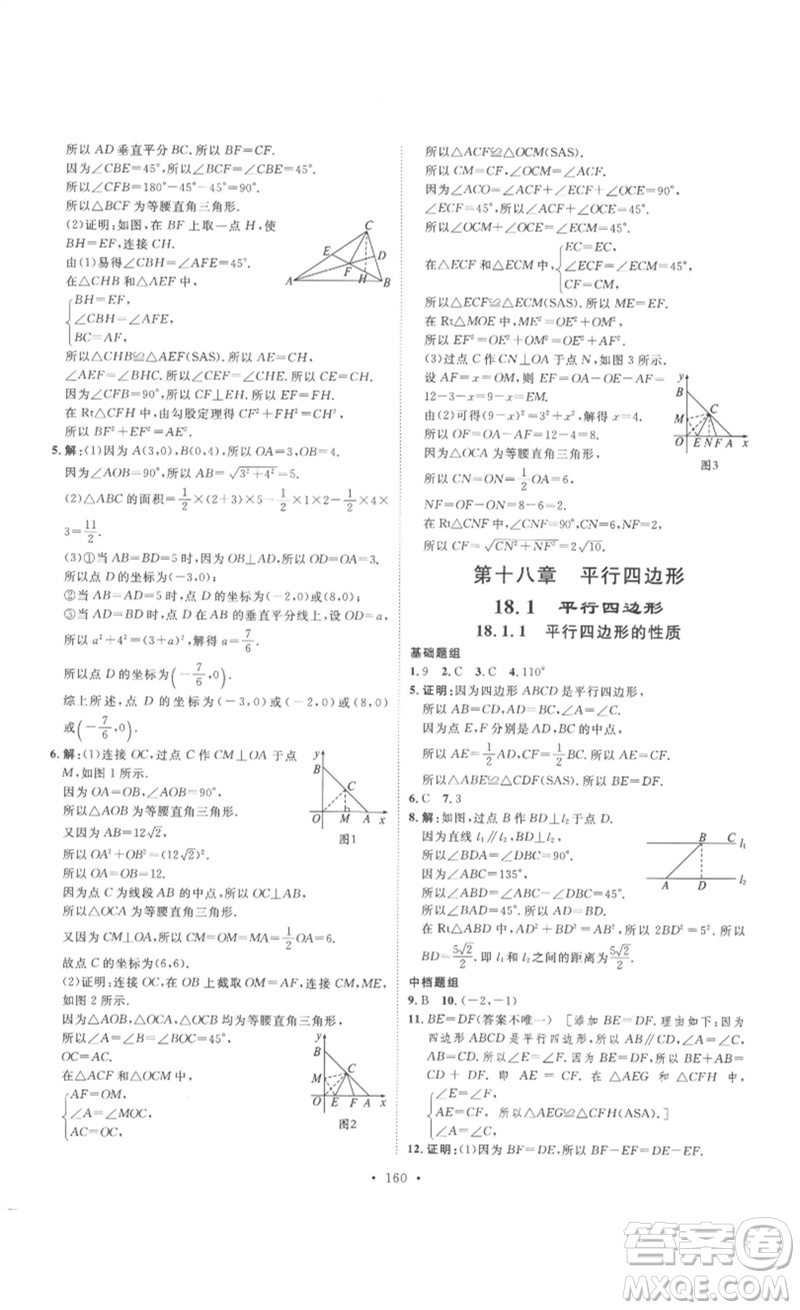 所以 AD 垂直平分 BC. 所以 BF=CF.
因为∠CBE=45°,所以∠BCF=∠CBF=45°.
所以∠CFB=180°-45°-45°=90°.
所以△BCF 为等腰直角三角形.
(2)证明:如图,在 BF 上取一点 H,使
BH=EF,连接 CH.
由(1)易得∠CBH=∠AFE=45°.
在△CHB 和△AEF 中,
BH=EF,
∠CBH=∠AFE,
BC=AF,
所以△CHB≌△AEF(SAS). 所以 AE=CH,
∠AEF=∠BHC. 所以∠CEF=∠CHE.
所以 CE=CH. 所以 CE=AE.
因为∠CFB=90°,所以 CF⊥EH. 所以 EF=FH.
在 Rt△CFH 中,由勾股定理得 CF²+FH²=
CH². 所以 BF²+EF²=AE².
5. 解:(1)因为 A(3,0),B(0,4),所以 OA=3,OB=4.
因为∠AOB=90°,所以 AB=√(3²+4²)=5.
(2)△ABC 的面积=1/2×(2+3)×5-1/2×1×2-1/2×4×
3=11/2.
(3)①当 AB=BD=5 时,因为 OB⊥AD,所以 OD=OA=3.
所以点 D 的坐标为(-3,0);
②当 AB=AD=5 时,点 D 的坐标为(-2,0)或(8,0);
③当 AD=BD 时,点 D 在 AB 的垂直平分线上,设 OD=a,
所以 a²+4²=(3+a)²,解得 a=7/6.
所以点 D 的坐标为(-7/6,0).
综上所述,点 D 的坐标为(-3,0)或(-2,0)或(8,0)
或(-7/6,0).
6. 解:(1)连接 OC,过点 C 作 CM⊥OA 于点
M,如图 1 所示.
因为 OA=OB,∠AOB=90°,
所以△AOB 为等腰直角三角形.
又因为 AB=12√2,
所以 OA²+OB²=(12√2)².
所以 OA=12.
因为 C 为线段 AB 的中点,所以 OC⊥AB.
所以△OCA 为等腰直角三角形.
又因为 CM⊥OA,所以 CM=OM=1/2OA=6.
故点 C 的坐标为(6,6).
(2)证明:连接 OC,在 OB 上截取 OM=AF,连接
CM,如图 2 所示.
因为△AOB,△AOC,△OCB 均为等腰直角三角形,
所以∠A=∠B=∠MOC=45°,
OC=AC.
在△ACF 和△OCM 中,
AF=OM,
∠A=∠MOC,
AC=OC,
C
E
D
F
A
H
B
y
B
C
O
M
A
x
图1
y
B
M
C
O
E
F
A
x
图2
所以△ACF≌△OCM(SAS).
所以 CM=CF,∠OCM=∠ACF.
因为∠ACO=∠ACF+∠FCO=90°,
所以∠OCM+∠FCO=90°.
因为∠ECF=45°,所以∠ECM=45°.
在△ECF 和△ECM 中,
EC=EC,
∠ECF=∠ECM,
CF=CM,
所以△ECF≌△ECM(SAS). 所以 ME=EF.
在 Rt△MOE 中,ME²=OE²+OM²,
所以 EF²=OE²+OM²=OE²+AF².
(3)过点 C 作 CN⊥OA 于点 N,如图 3 所示.
设 AF=x,则 EF=OA-OE-AF=
12-3-x=9-x.
由(2)可得(9-x)²=3²+x²,解得x=4.
所以 OF=OA-AF=12-4=8.
因为△OCA 为等腰直角三角形,
所以 CN=ON=1/2OA=6,
NF=OF-ON=8-6=2.
在 Rt△CNF 中,∠CNF=90°,
所以 CF=√(CN²+NF²)=2√10.
y
B
M
C
O
E
N
F
A
x
图3
第十八章 平行四边形
18.1 平行四边形
18.1.1 平行四边形的性质
基础题组
1. 9 2. C 3. C 4. 110°
5. 证明:因为四边形 ABCD 是平行四边形,
所以 AB=CD,AD=BC,∠A=∠C.
因为点 E,F 分别是 AD,BC 的中点,
所以 AE=1/2AD,CF=1/2BC. 所以 AE=CF.
所以△ABE≌△CDF(SAS).
6. C 7. 3
8. 解:如图,过点 B 作 BD⊥l₂ 于点 D.
因为直线 l₁∥l₂,
所以∠BDA=∠DBC=90°.
因为∠ABC=135°,
所以∠ABD=45°.
所以∠BAD=45°. 所以 AD=BD.
在 Rt△ABD 中,AD²+BD²=AB²=5²,所以
BD=5√2/2. 即 l₁ 和 l₂ 之间的距离为5√2/2.
B
C
l₁
A
D
l₂
中档题组
9. B 10. (-2,-1)
11. BE=DF(答案不唯一) [添加 BE=DF. 理由如下:因为
四边形 ABCD 是平行四边形,所以 AB∥CD,∠A=∠C,
AB=CD. 所以∠E=∠F. 因为 BE=DF,所以 BE+AB=
CD+DF. 即 AE=CF. 在△AEG 和△CFH 中,
∠E=∠F,
AE=CF,
∠A=∠C,
所以△AEG≌△CFH(ASA).]
12. 证明:(1)因为 BF=DE,所以 BF-EF=DE-EF.
• 160 •
答案圈
MXQE.COM